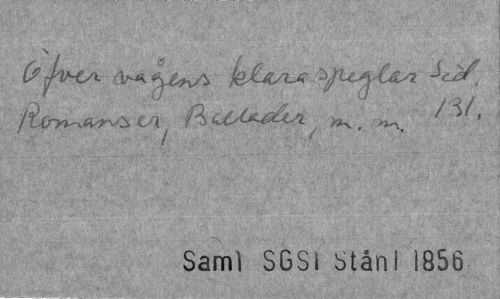 Öfver vågens klara speglar Sid.
Romanser, Ballader, m. m. 131.
Saml SGSl Stånl 1856